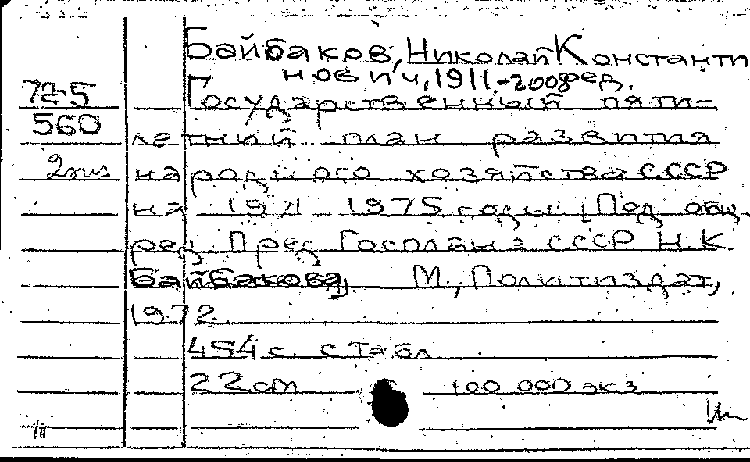 Байбаков, Николай Константи
нович, 1911-2008 ред.
72-5
560
2 экз
Государственный пяти-
летний план развития
народного хозяйства СССР
на 1971-1975 годы. [Под общ.
ред. Пред. Госплана СССР Н.К.
Байбакова], М., Политиздат,
1972.
454 с. с табл.
22 см 100 000 экз